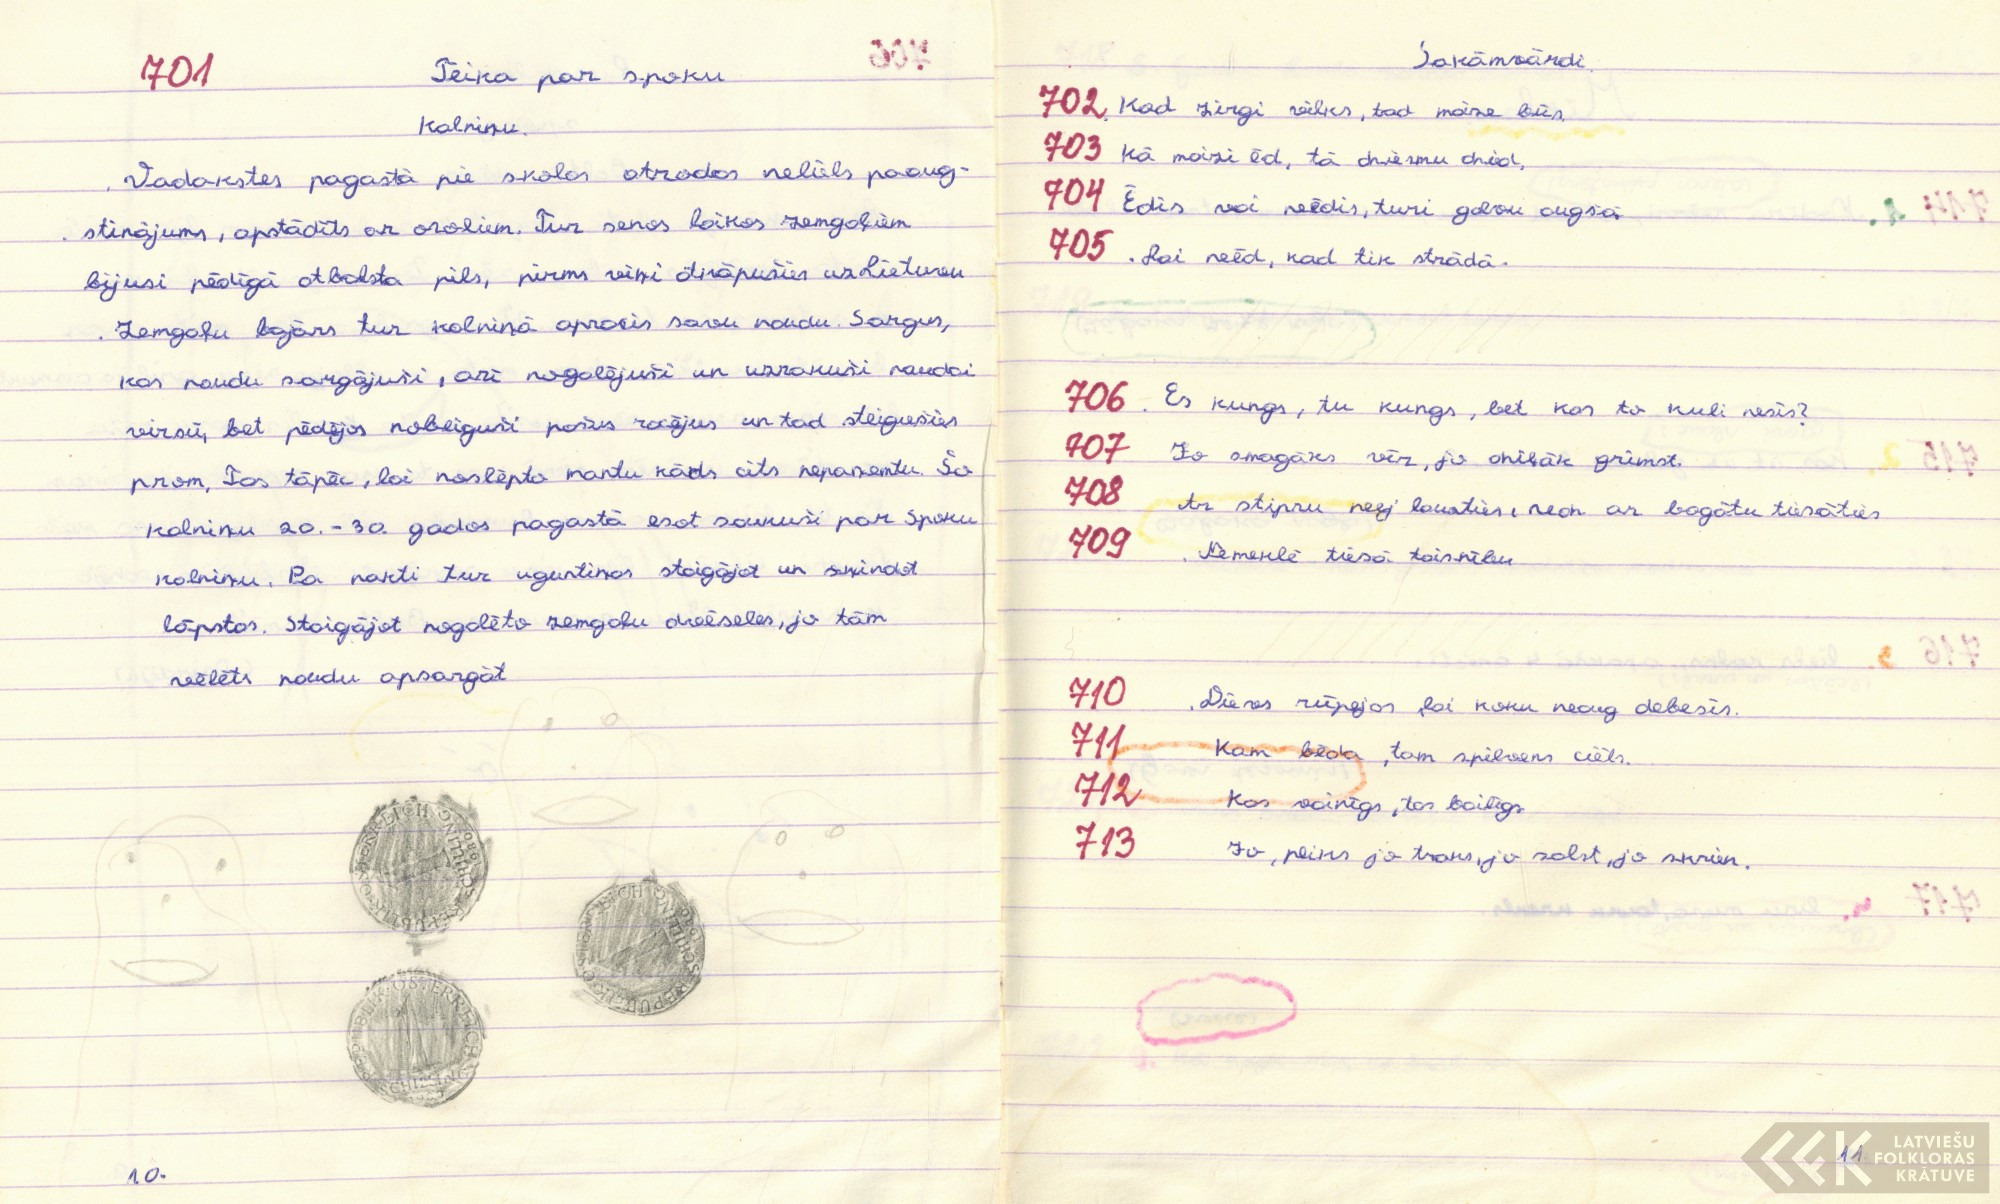 701
Teika par spoku
kalniņu.
Vadakstes pagastā pie skolas atrodas neliels paaug-
stinājums, apstādīts ar ozoliem. Tur senos laikos zemgaļiem
bijusi pēdīgā atbalsta pils, pirms viņi atkāpušies uz Lietuvu
. Zemgaļu bajārs tur kalniņā apracis savu naudu. Sargus,
kas naudu sargājuši, arī nogalējuši un uzrakuši naudai
virsū, bet pēdējos nobeiguši pašus racējus un tad steigušies
prom. Tas tāpēc, lai noslēpto mantu kāds cits nepaņemtu. Šo
kalniņu 20.-30. gados pagastā esot saukuši par Spoku
kalniņu. Pa nakti tur uguntiņas staigājot un šķindot
lāpstas. Staigājot nogalēto zemgaļu dvēseles, jo tām
vēlēts naudu apsargāt
REPUBLIK ÖSTERREICH
SCHILLING
1980
10.
Sakāmvārdi.
702. Kad zirgi vilks, tad maize būs.
703 Kā maizi ēd, tā dziesmu dzied.
704 Ēdis vai neēdis, turi galvu augšā.
705 . Lai neēd, kad tik strādā.
706 . Es kungs, tu kungs, bet kas to kuli nesīs?
707 Jo smagāks vēz, jo dziļāk grimst.
708 Ar stipru neej lauzties, nedz ar bagātu tiesāties
709 . Nemeklē tiesā taisnību
710 . Dievs rūpējas lai koku neaug debesīs.
711 Kam bēda, tam spilvens ciets.
712 Kas vainīgs, tas bailīgs
713 Jo, peiks jo traks, jo salst, jo skrien.
11.
LATVIEŠU
FOLKLORAS
KRĀTUVE